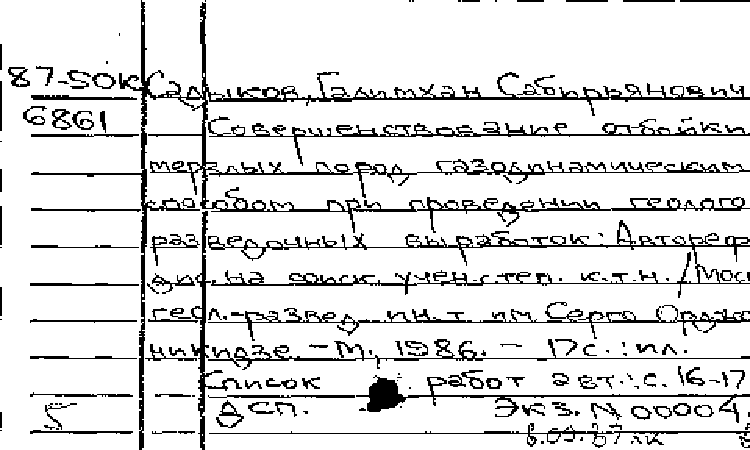 87-50К Садыков, Галимхан Сабирьянович
6861 Совершенствование отбойки
мерзлых пород газодинамическим
способом при проведении геолого
разведочных выработок: Автореф
дис. на соиск. учен. степ. к.т.н. / Моск
геол.-развед. ин-т им Серго Орджо
никидзе. – М., 1986. – 17 с.: ил.
Список работ авт.: с. 16-17
5 ДСП. Экз. N 00004.